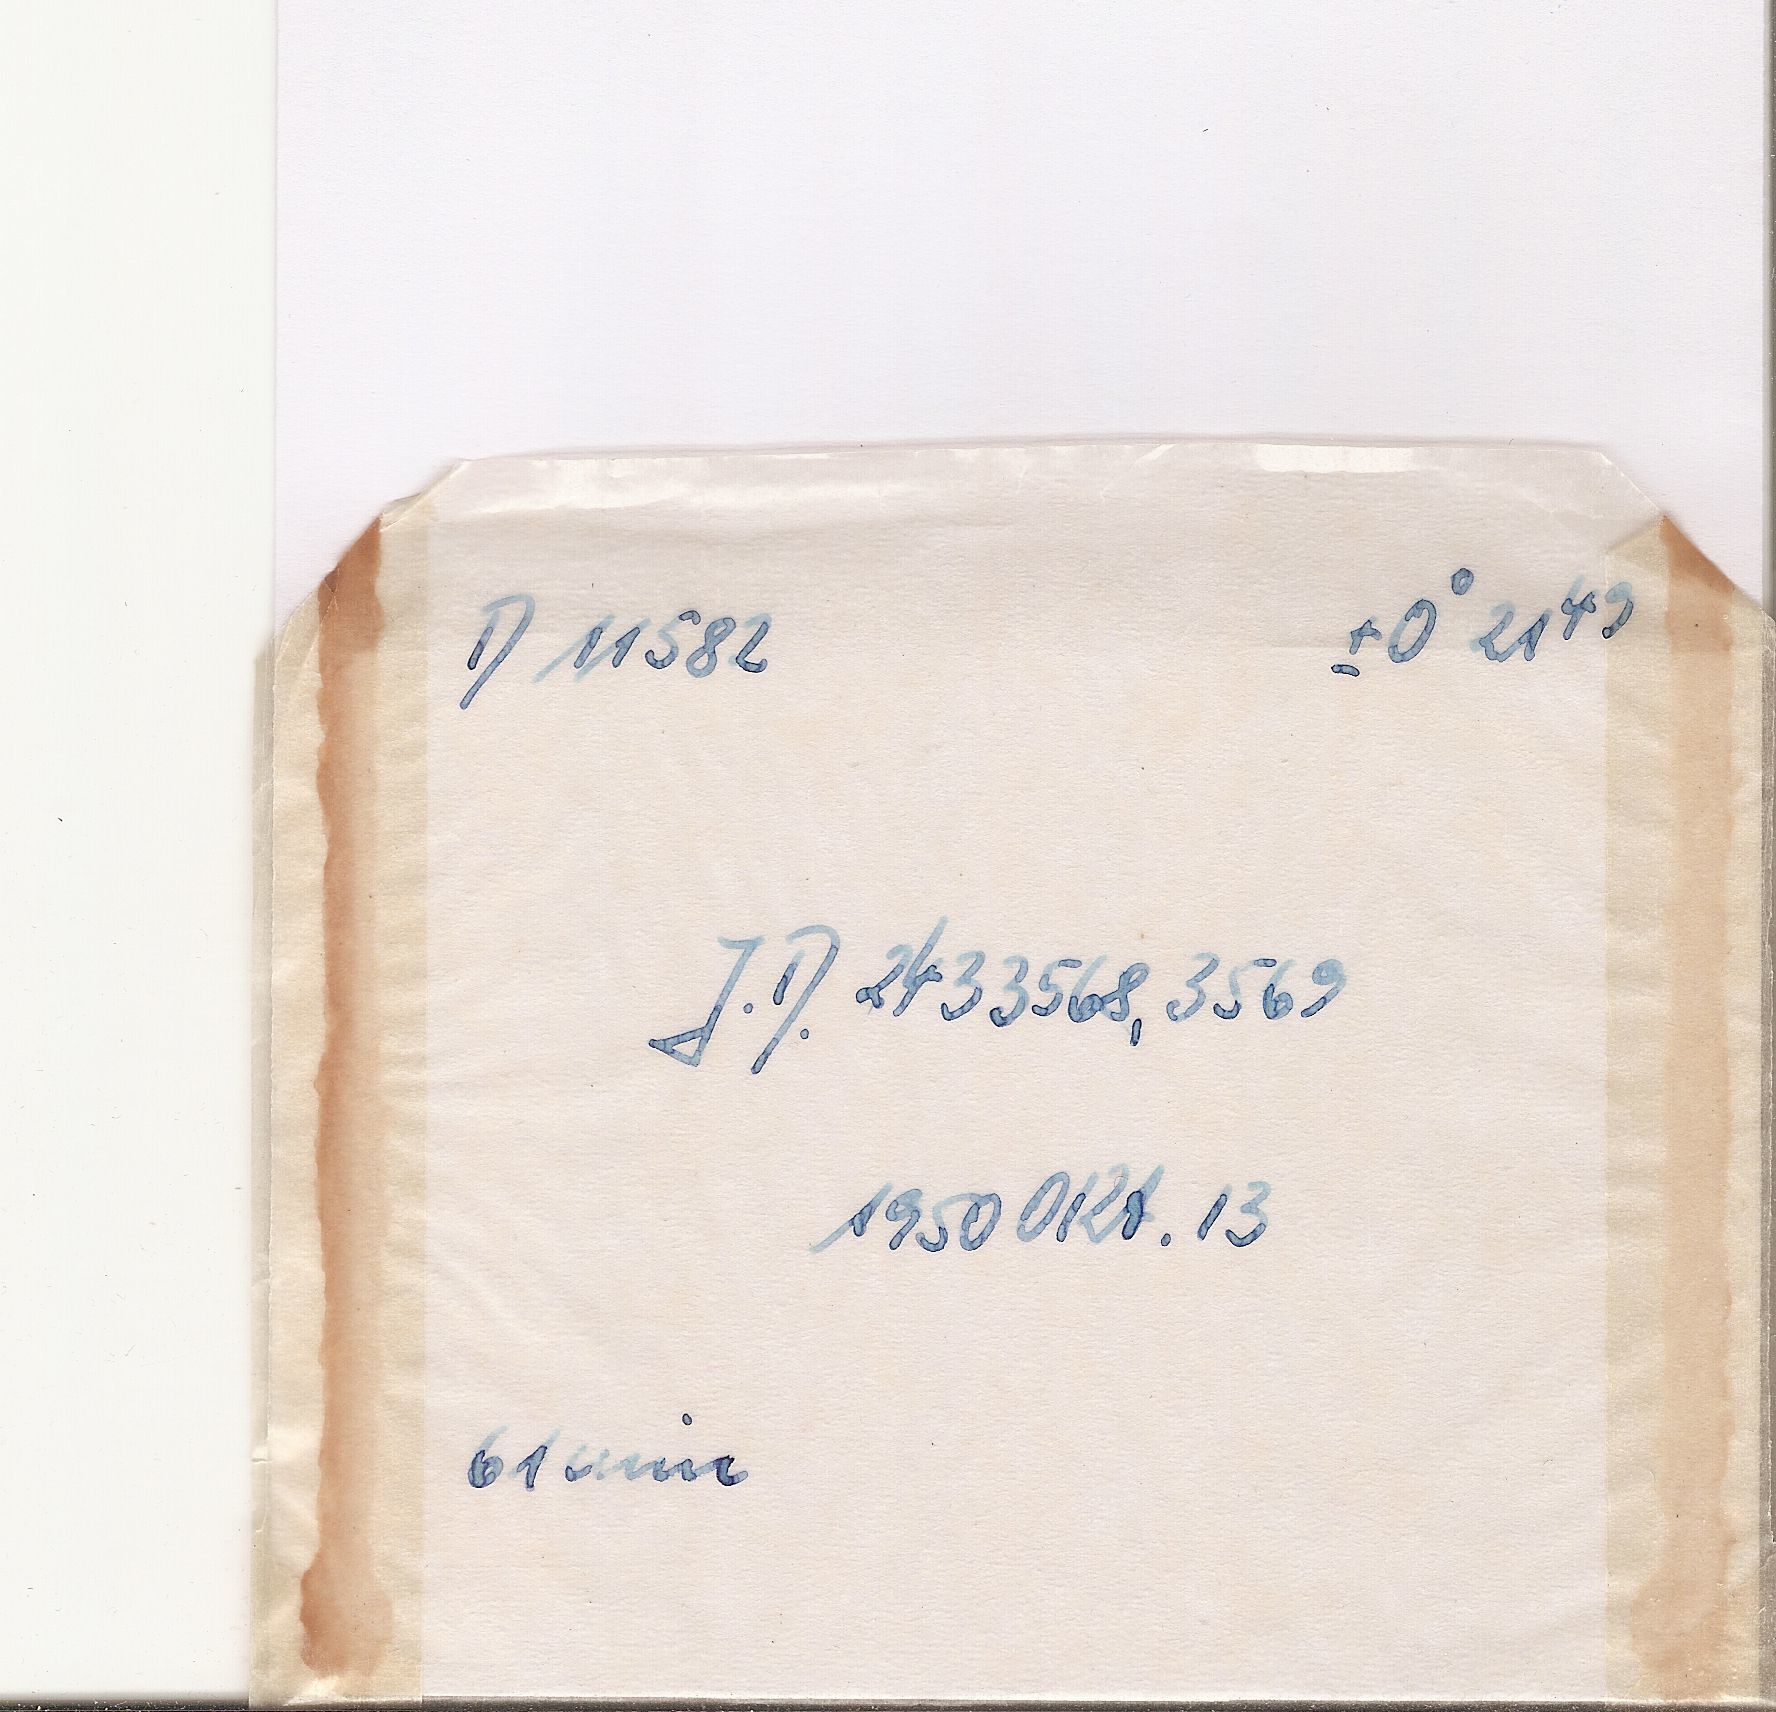 D 11582 ±0° 21⁴⁹
J.D. 2433568,3569
1950 Okt. 13
61 min